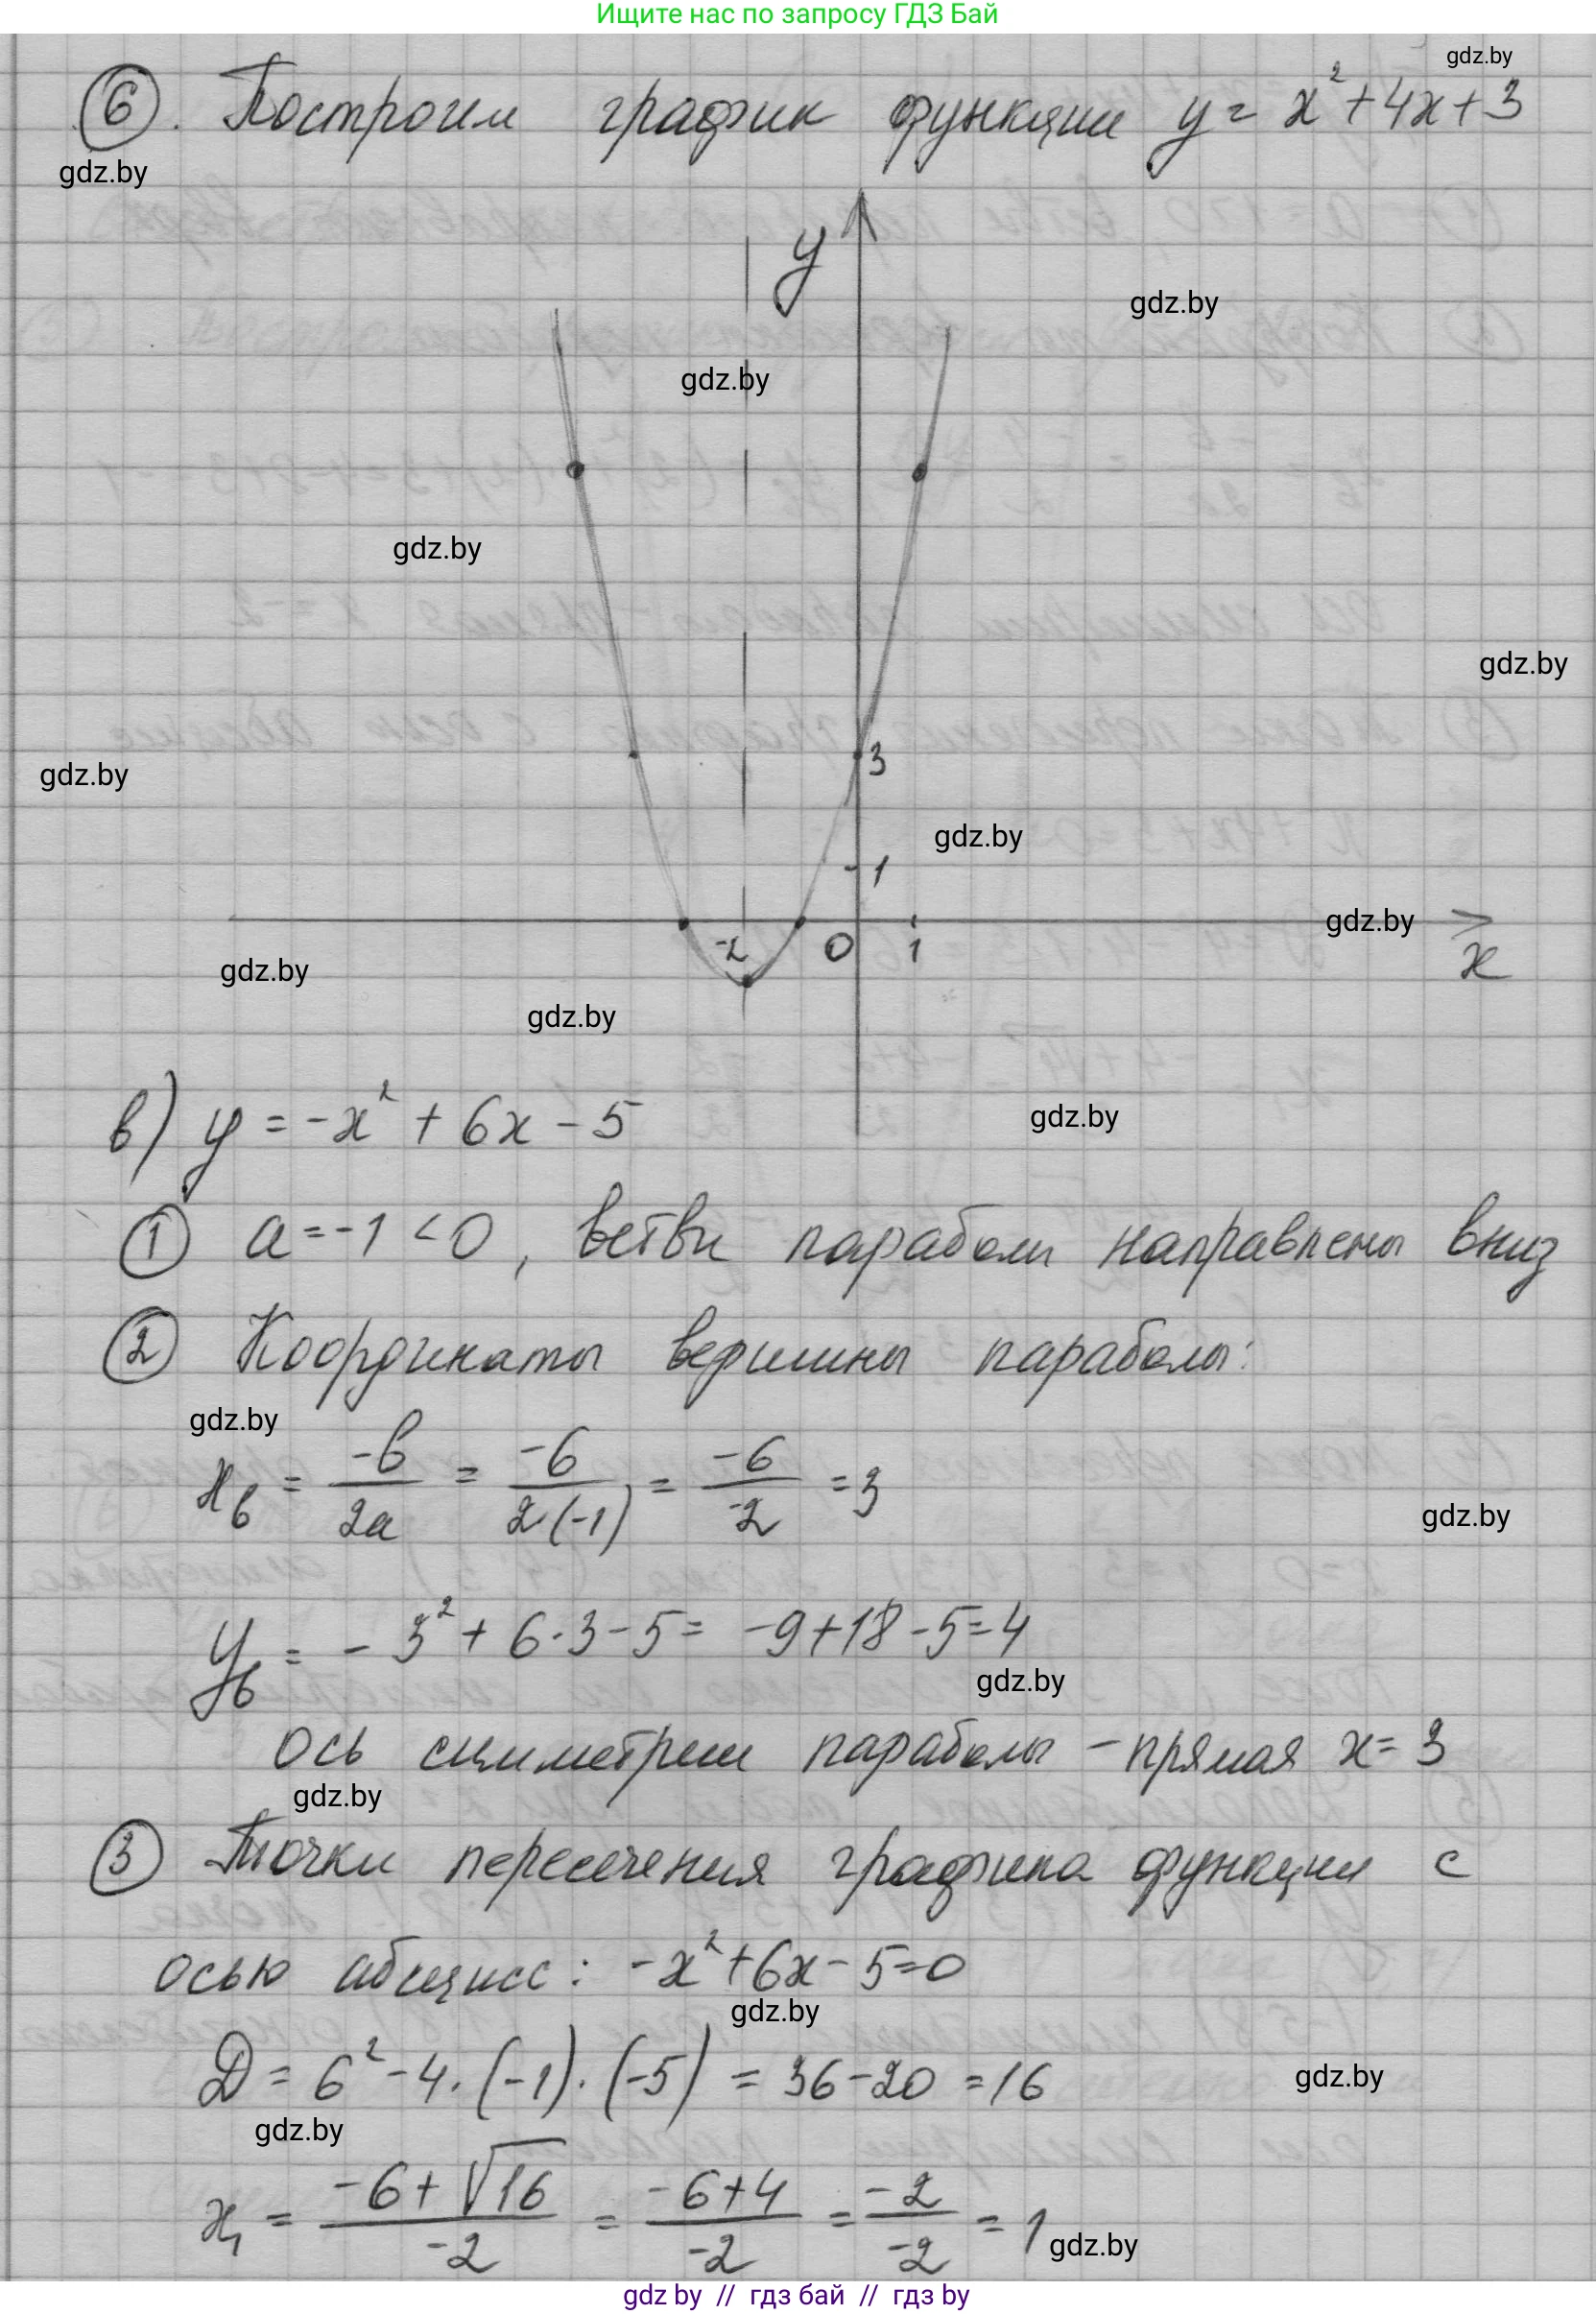 Ищите нас по запросу ГДЗ Бай
gdz.by
⑥. Построим график функции y = x² + 4x + 3
gdz.by
y
gdz.by
gdz.by
gdz.by
gdz.by
3
gdz.by
gdz.by
1
gdz.by
-2 0 1
x
gdz.by
gdz.by
в) y = -x² + 6x - 5
gdz.by
① a = -1 < 0, ветви параболы направлены вниз
② Координаты вершины параболы:
gdz.by
xв = -b/2a = -6/2(-1) = -6/-2 = 3
gdz.by
yв = - 3² + 6·3 - 5 = -9 + 18 - 5 = 4
gdz.by
ось симметрии параболы - прямая x = 3
gdz.by
③ Точки пересечения графика функции с
осью абсцисс: -x² + 6x - 5 = 0
gdz.by
D = 6² - 4·(-1)·(-5) = 36 - 20 = 16
gdz.by
gdz.by
x₁ = -6+√16/-2 = -6+4/-2 = -2/-2 = 1
gdz.by
gdz by // гдз бай // гдз by